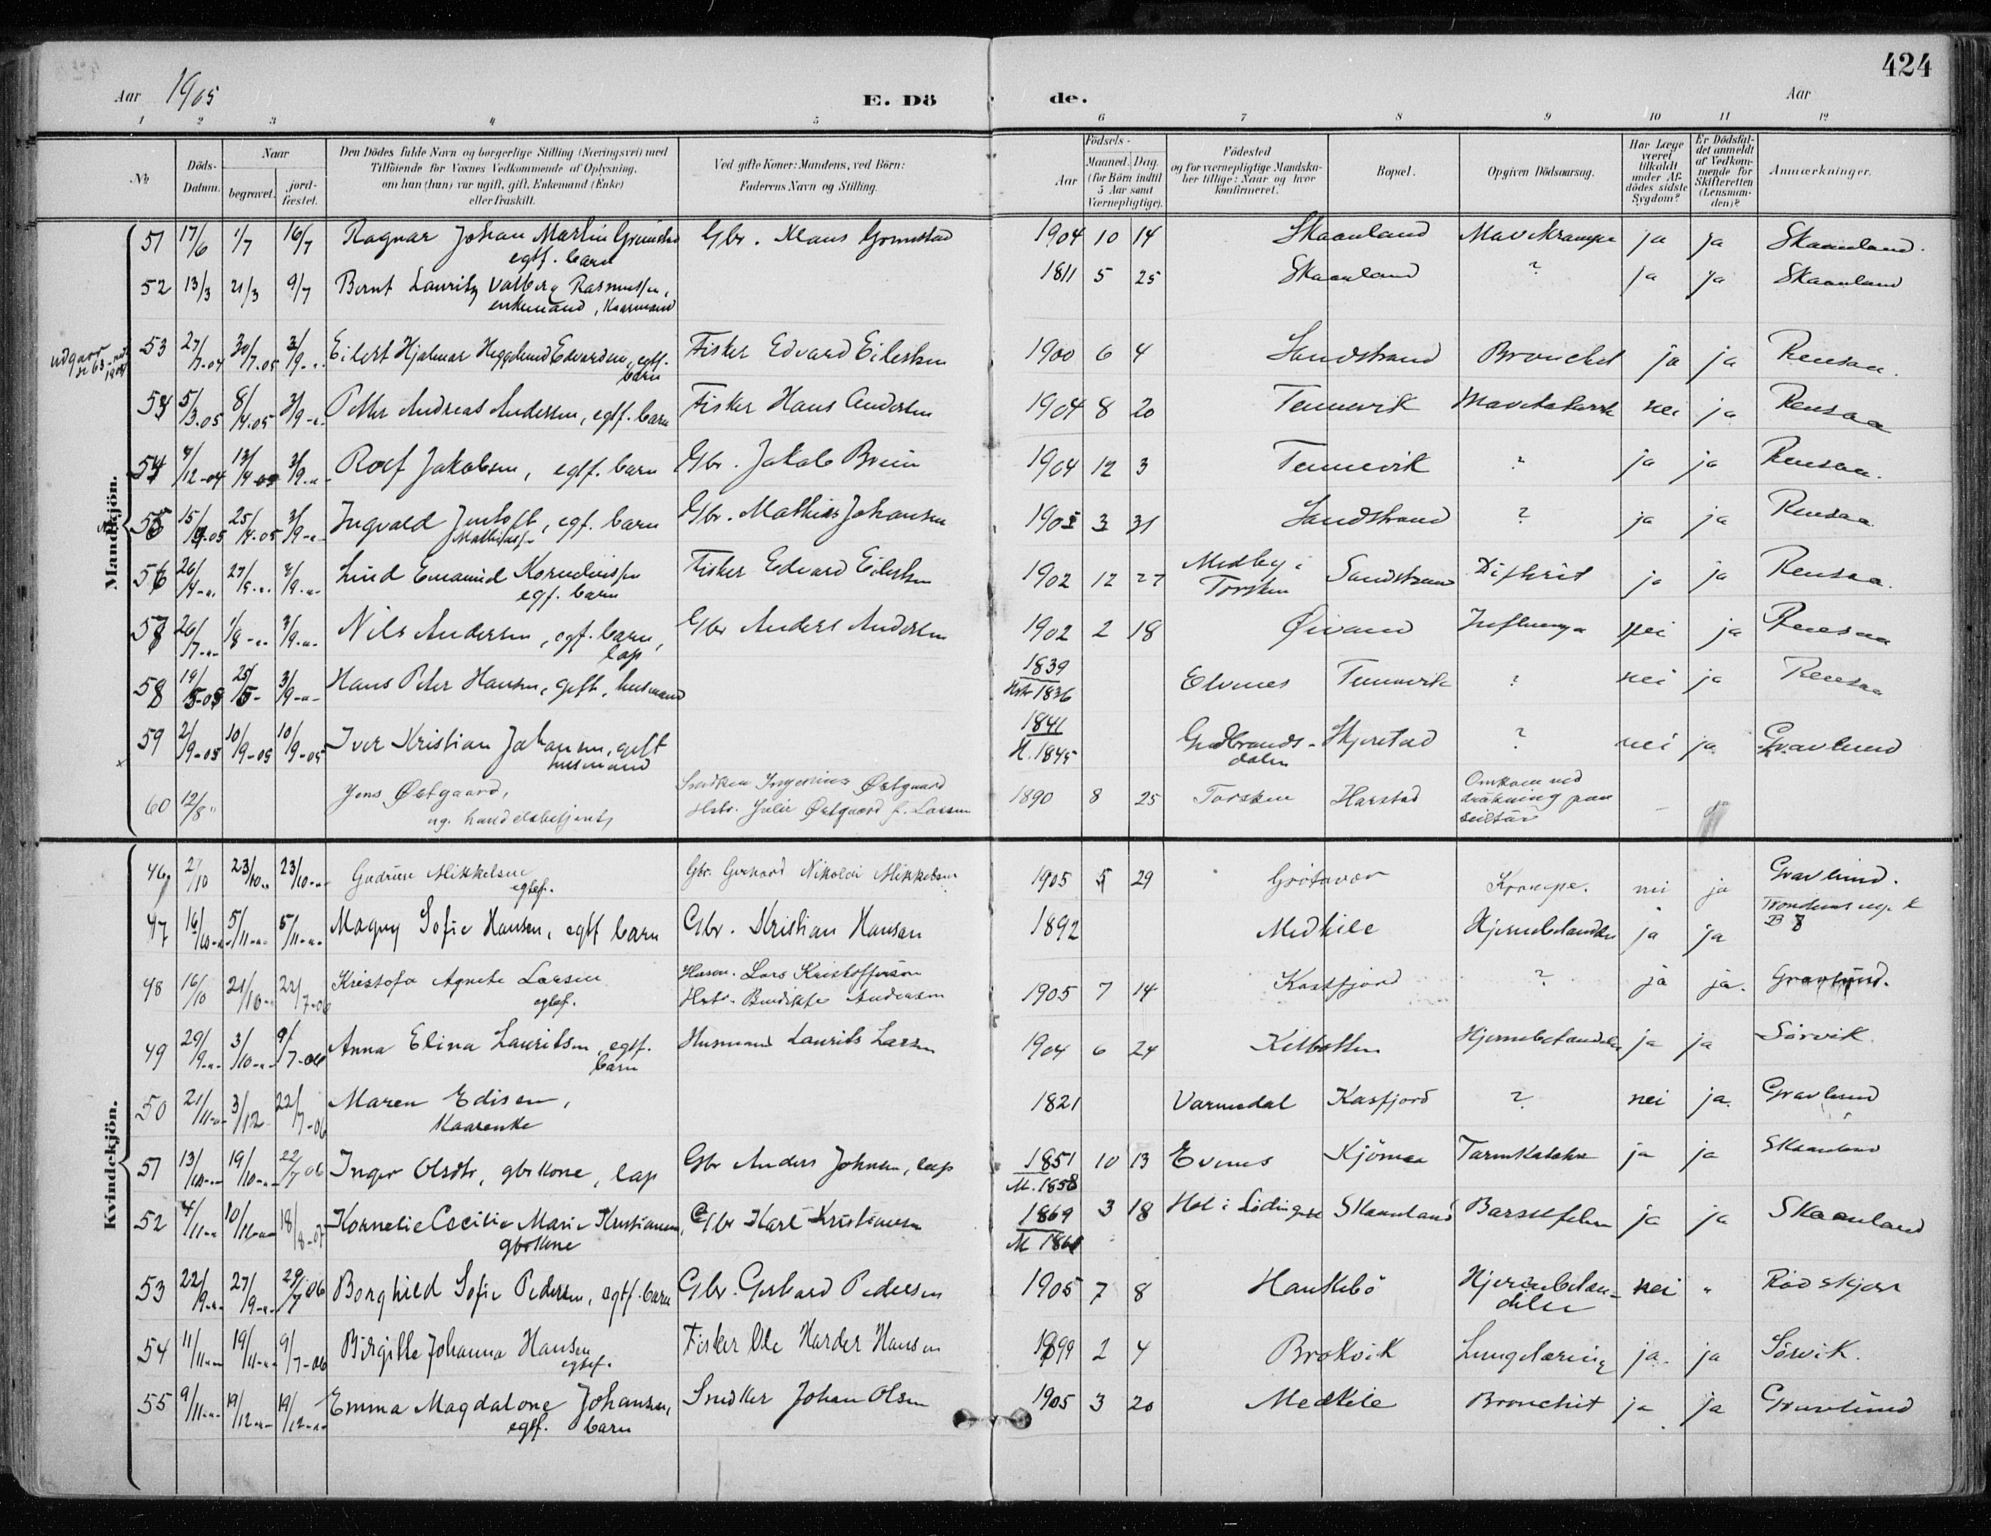 424
Aar 1905 E. Dö de. Aar
1 2 3 4 5 6 7 8 9 10 11 12
No
Döds-Datum.
Naar
begravet.
jord-fæstet.
Den Dödes fulde Navn og borgerlige Stilling (Næringsvei) med
Tilföiende for Voxnes Vedkommende af Oplysning,
om han (hun) var ugift, gift, Enkemand (Enke)
eller fraskilt.
Ved gifte Koner: Mandens, ved Börn:
Faderens Navn og Stilling.
Födsels-
Aar
Maaned. Dag.
(for Börn indtil
5 Aar samt
Værnepligtige).
Födested
og for værnepligtige Mandska-
ber tillige: Naar og hvor
konfirmeret.
Bopæl.
Opgiven Dödsaarsag.
Har Læge
været
tilkaldt
under Af-
dödes sidste
Sygdom?
Er Dödsfal-
det anmeldt
af Vedkom-
mende for
Skifteretten
(Lensman-
den)?
Anmærkninger.
Mandkjön.
51 17/6 1/7 16/7 Ragnar Johan Martin Grimstad Gbr. Klaus Grimstad 1904 10 14 Skaanland Mavekrampe ja ja Skaanland.
egtf. barn
52 13/3 21/3 9/7 Bernt Lauritz Valberg Rasmussen, 1811 5 25 Skaanland ? ja ja Skaanland
enkemand, Kaarmand
udgaar
53 27/7-04 30/7-05 3/9-"- Eilert Hjalmar Heggelund Edvardsen, egtf. Fisker Edvard Eilertsen 1900 6 4 Sandstrand Bronchit ja ja Rensaa.
barn
54 5/3.05 8/4.05 3/9-"- Petter Andreas Andersen, egtf. barn Fisker Hans Andersen 1904 8 20 Tennevik Mavekatarrh nei ja Rensaa
54 4/12-04 13/4-05 3/9-"- Rolf Jakobsen, egtf. barn Gbr. Jakob Brein 1904 12 3 Tennevik ? ja ja Rensaa.
55 15/4-05 25/4-05 3/9-"- Ingvald Jentoft, egf. barn Gbr. Mathias Johansen 1905 3 31 Sandstrand ? ja ja Rensaa.
56 26/4-"- 27/9-"- 3/9-"- Lind Emanuel Korneliussen Fisker Edvard Eilertsen 1902 12 27 Medby i Torsken Sandstrand Difterit ja ja Rensaa.
egf. barn
57 26/7-"- 1/8-"- 3/9-"- Nils Andersen, egf. barn, Gbr Anders Andersen 1902 2 18 Øivand Influenza nei ja Rensaa
lap
58 19/5-05 25/5- 3/9-"- Hans Peter Hansen, gift, husmand 1839 Hstr 1836 Elvenes Tennevik ? nei ja Rensaa
59 2/9-05 10/9-05 10/9-05 Iver Kristian Johansen, gift 1841 H. 1845 Gudbrands-dalen Skjerstad ? nei ja Gravlund
husmand
60 12/8 " Jens Østgaard, Snedker Ingenius Østgaard 1890 8 25 Torsken Harstad Omkom ved
ug. handelsbetjent, Hstr. Julie Østgaard f. Larsen drukning paa
seiltur
Kvindekjön.
46 2/10 23/10-"- 23/10-"- Gudrun Mikkelsen Gbr. Gerhard Nikolai Mikkelsen 1905 5 29 Grötavær Krampe. nei ja Gravlund.
egtef.
47 16/10-"- 5/11-"- 5/11-"- Magny Sofie Hansen, egtf barn Gbr. Kristian Hansen 1892 Medkile Hjernebetændelse ja ja B 8
48 16/10 21/10-"- 22/7-06 Kristofa Agnete Larsen Husm. Lars Kristofferson 1905 7 14 Kasfjord ? ja ja. Gravlund.
egtef. Hstr. Bendikte Andersen
49 29/9-"- 3/10-"- 9/7-06 Anna Elina Lauritsen, egtf. Husmand Laurits Larsen 1904 6 24 Kilbotten Hjernebetændelse ja ja Sörvik.
barn
50 21/11-"- 3/12 22/7-06 Maren Edisen, 1821 Varmedal Kasfjord ? nei ja. Gravlund
Kaarenke
51 13/10-"- 19/10-"- 22/7 06 Inger Olsdtr, gbrkone, lap Gbr Anders Johnsen, lap 1851 M. 1858 10 13 Evenes Kjönnaa Tarmkatahr ja ja Skaanland
52 4/11-"- 10/11-"- 18/8-07 Kornelie Cecilie Marie Kristiansen, Gbr Karl Kristiansen 1869 M 1861 3 18 Hol i Lödingen Skaanland Barselfeber ja ja Skaanland
gbrkone
53 22/9-"- 27/9-"- 29/7 06 Borghild Sofie Pedersen, egtf. barn Gbr. Gerhard Pedersen 1905 7 8 Haukebö Hjernebetæn-delse nei " Rödskjær
54 11/11-"- 19/11-"- 9/7-06 Birgitte Johanna Hansen Fisker Ole Harder Hansen 1899 2 4 Brokvik Lungetæring ja. ja Sörvik.
egtef.
55 9/11-"- 19/12-"- 19/12-"- Emma Magdalone Johansen, Snedker Johan Olsen 1905 3 20 Medkile Bronchit ja ja Gravlund
egtf. barn